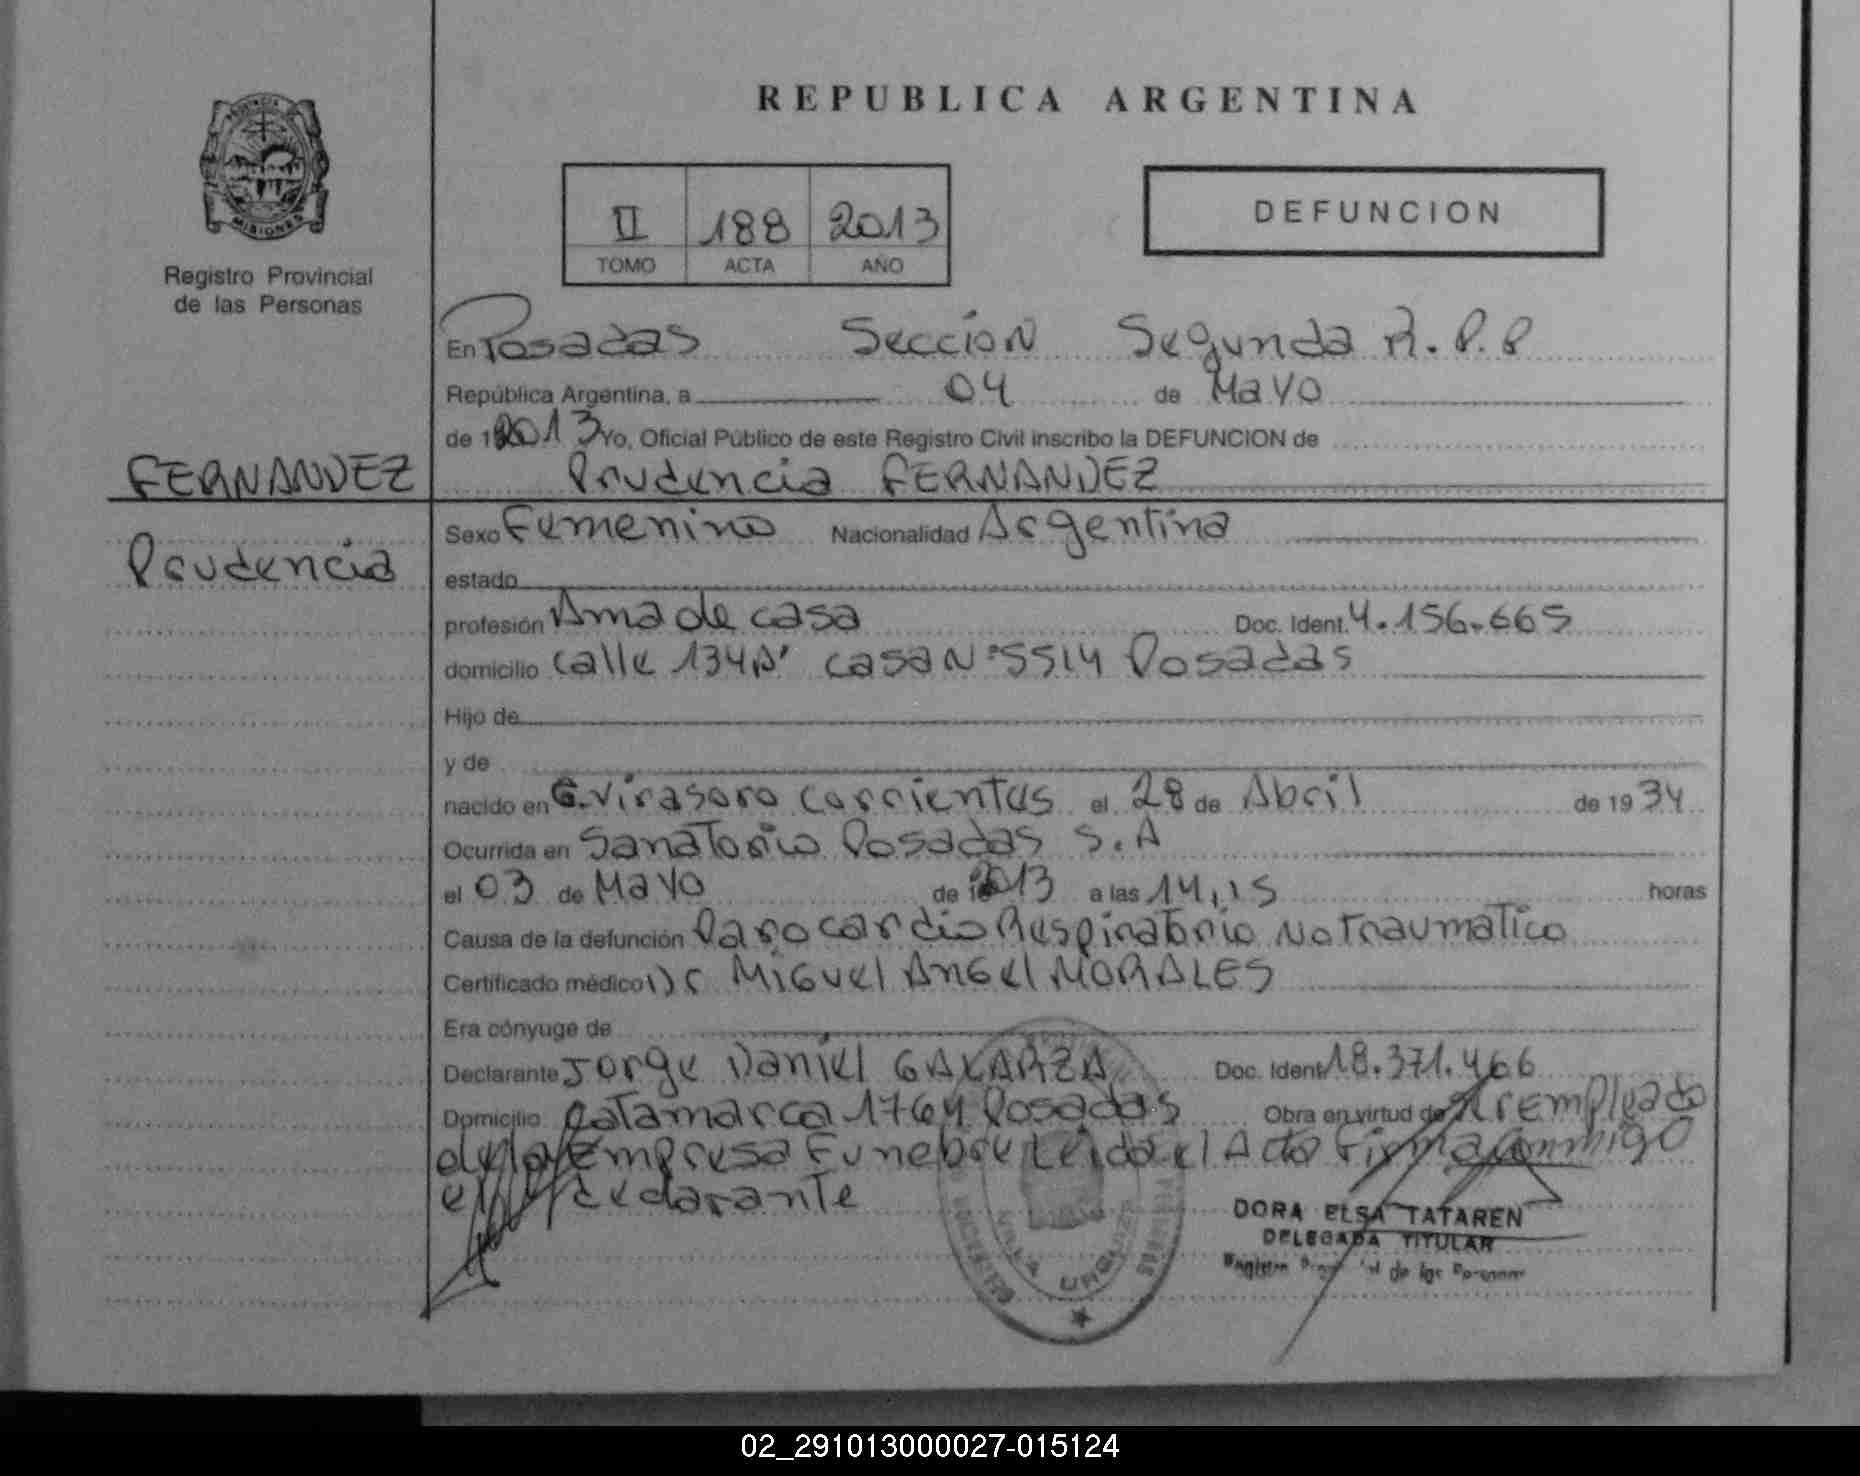 REPUBLICA ARGENTINA
PROVINCIA
MISIONES
Registro Provincial
de las Personas
II 188 2013
TOMO ACTA AÑO
DEFUNCION
En Posadas Sección Segunda R.P.P
República Argentina, a 04 de Mayo
de 2013 Yo, Oficial Público de este Registro Civil inscribo la DEFUNCION de
FERNANDEZ
Prudencia FERNANDEZ
Prudencia
Sexo Femenino Nacionalidad Argentina
estado
profesión Ama de casa Doc. Ident. 4.156.665
domicilio calle 134A' casa Nº 5514 Posadas
Hijo de
y de
nacido en G. Virasoro Corrientes el 28 de Abril de 1934
Ocurrida en Sanatorio Posadas S.A
el 03 de Mayo de 2013 a las 14,15 horas
Causa de la defunción Paro cardio Respiratorio No Traumatico
Certificado médico Dr Miguel Angel MORALES
Era cónyuge de
Declarante Jorge Daniel GALARZA Doc. Ident. 18.371.466
Domicilio Catamarca 1764 Posadas Obra en virtud de ser empleado
de la Empresa Funebre Leida el Acta Firma conmigo
el declarante
VILLA URQUIZA
DORA ELSA TATAREN
DELEGADA TITULAR
Registro Provincial de las Personas
02_291013000027-015124